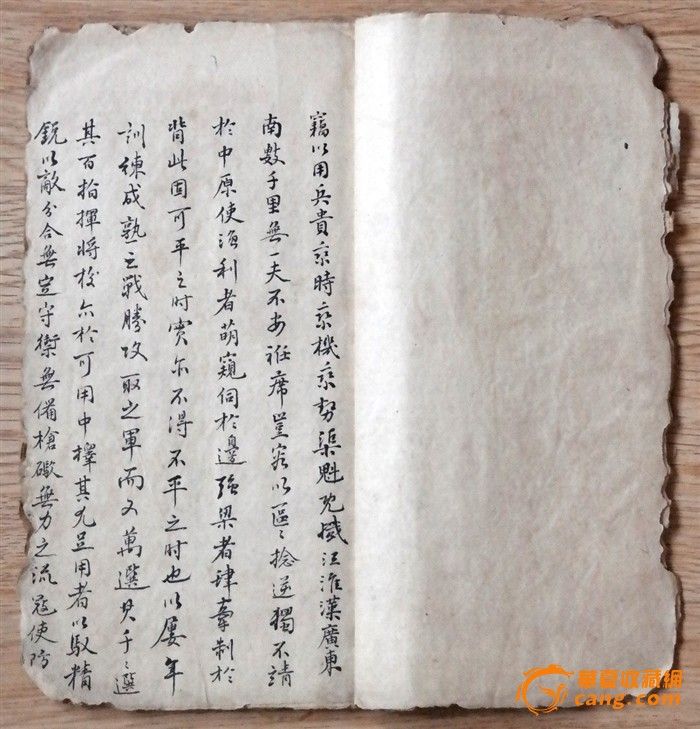 竊以用兵貴乘時乘機乘勢渠魁既滅江淮漢廣東
南數千里無一夫不安袵席豈容以區〻捻逆獨不靖
於中原使漁利者萌窺伺於邊強梁者肆牽制於
背此固可平之时實亦不得不平之时也以屡年
訓練成熟之戰勝攻取之軍而又萬選其千〻選
其百指揮將校亦於可用中擇其尤足用者以馭精
鋭以敵分合無定守禦無備槍礮無力之流寇使防
華夏收藏網
cang.com